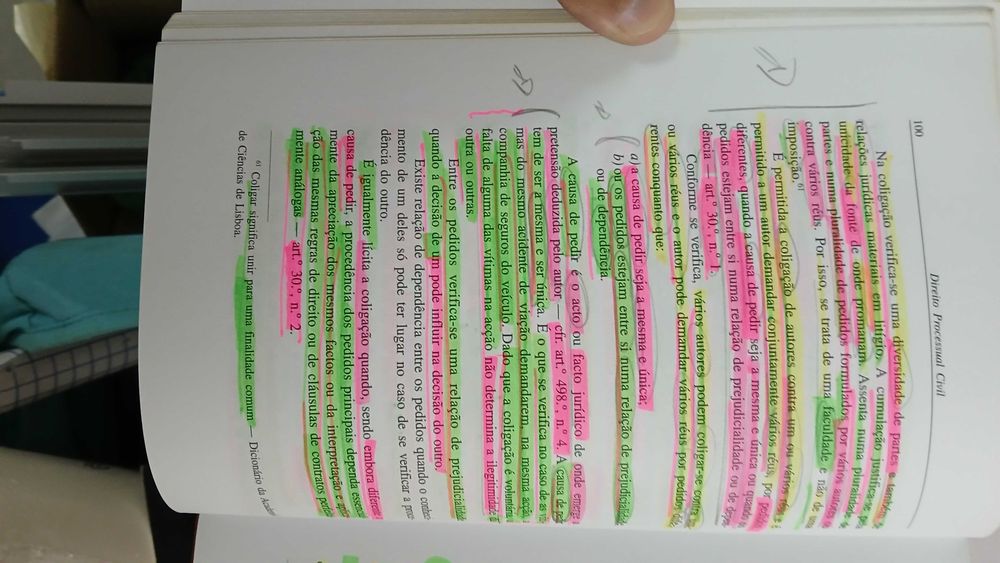 100
Direito Processual Civil
Na coligação verifica-se uma diversidade de partes e
relações jurídicas materiais em litígio. A cumulação justifica-se
unicidade de fonte de onde promanam. Assenta numa pluralidade
partes e numa pluralidade de pedidos formulados por vários
contra vários réus. Por isso, se trata de uma faculdade e não de
imposição. 61
É permitida a coligação de autores contra um ou vários réus e
permitido a um autor demandar conjuntamente vários réus, por
diferentes, quando a causa de pedir seja a mesma e única ou quando
pedidos estejam entre si numa relação de prejudicialidade ou de
dência — art.º 30.º, n.º 1.
Conforme se verifica, vários autores podem coligar-se contra
ou vários réus e o autor pode demandar vários réus por pedidos
rentes conquanto que:
a) a causa de pedir seja a mesma e única;
b) ou os pedidos estejam entre si numa relação de
ou de dependência.
A causa de pedir é o acto ou facto jurídico de onde emerge
pretensão deduzida pelo autor — cfr. art.º 498.º, n.º 4. A causa de
tem de ser a mesma e ser única. É o que se verifica no caso de as
mas do mesmo acidente de viação demandarem, na mesma acção,
companhia de seguros do veículo. Dado que a coligação é
falta de alguma das vítimas na acção não determina a ilegitimidade
outra ou outras.
Entre os pedidos verifica-se uma relação de
quando a decisão de um pode influir na decisão do outro.
Existe relação de dependência entre os pedidos quando o
mento de um deles só pode ter lugar no caso de se verificar a
dência do outro.
É igualmente lícita a coligação quando, sendo embora diferente
causa de pedir, a procedência dos pedidos principais dependa
mente da apreciação dos mesmos factos ou da interpretação e
ção das mesmas regras de direito ou de cláusulas de contratos
mente análogas — art.º 30.º, n.º 2.
61 Coligar significa unir para uma finalidade comum — Dicionário da
de Ciências de Lisboa.